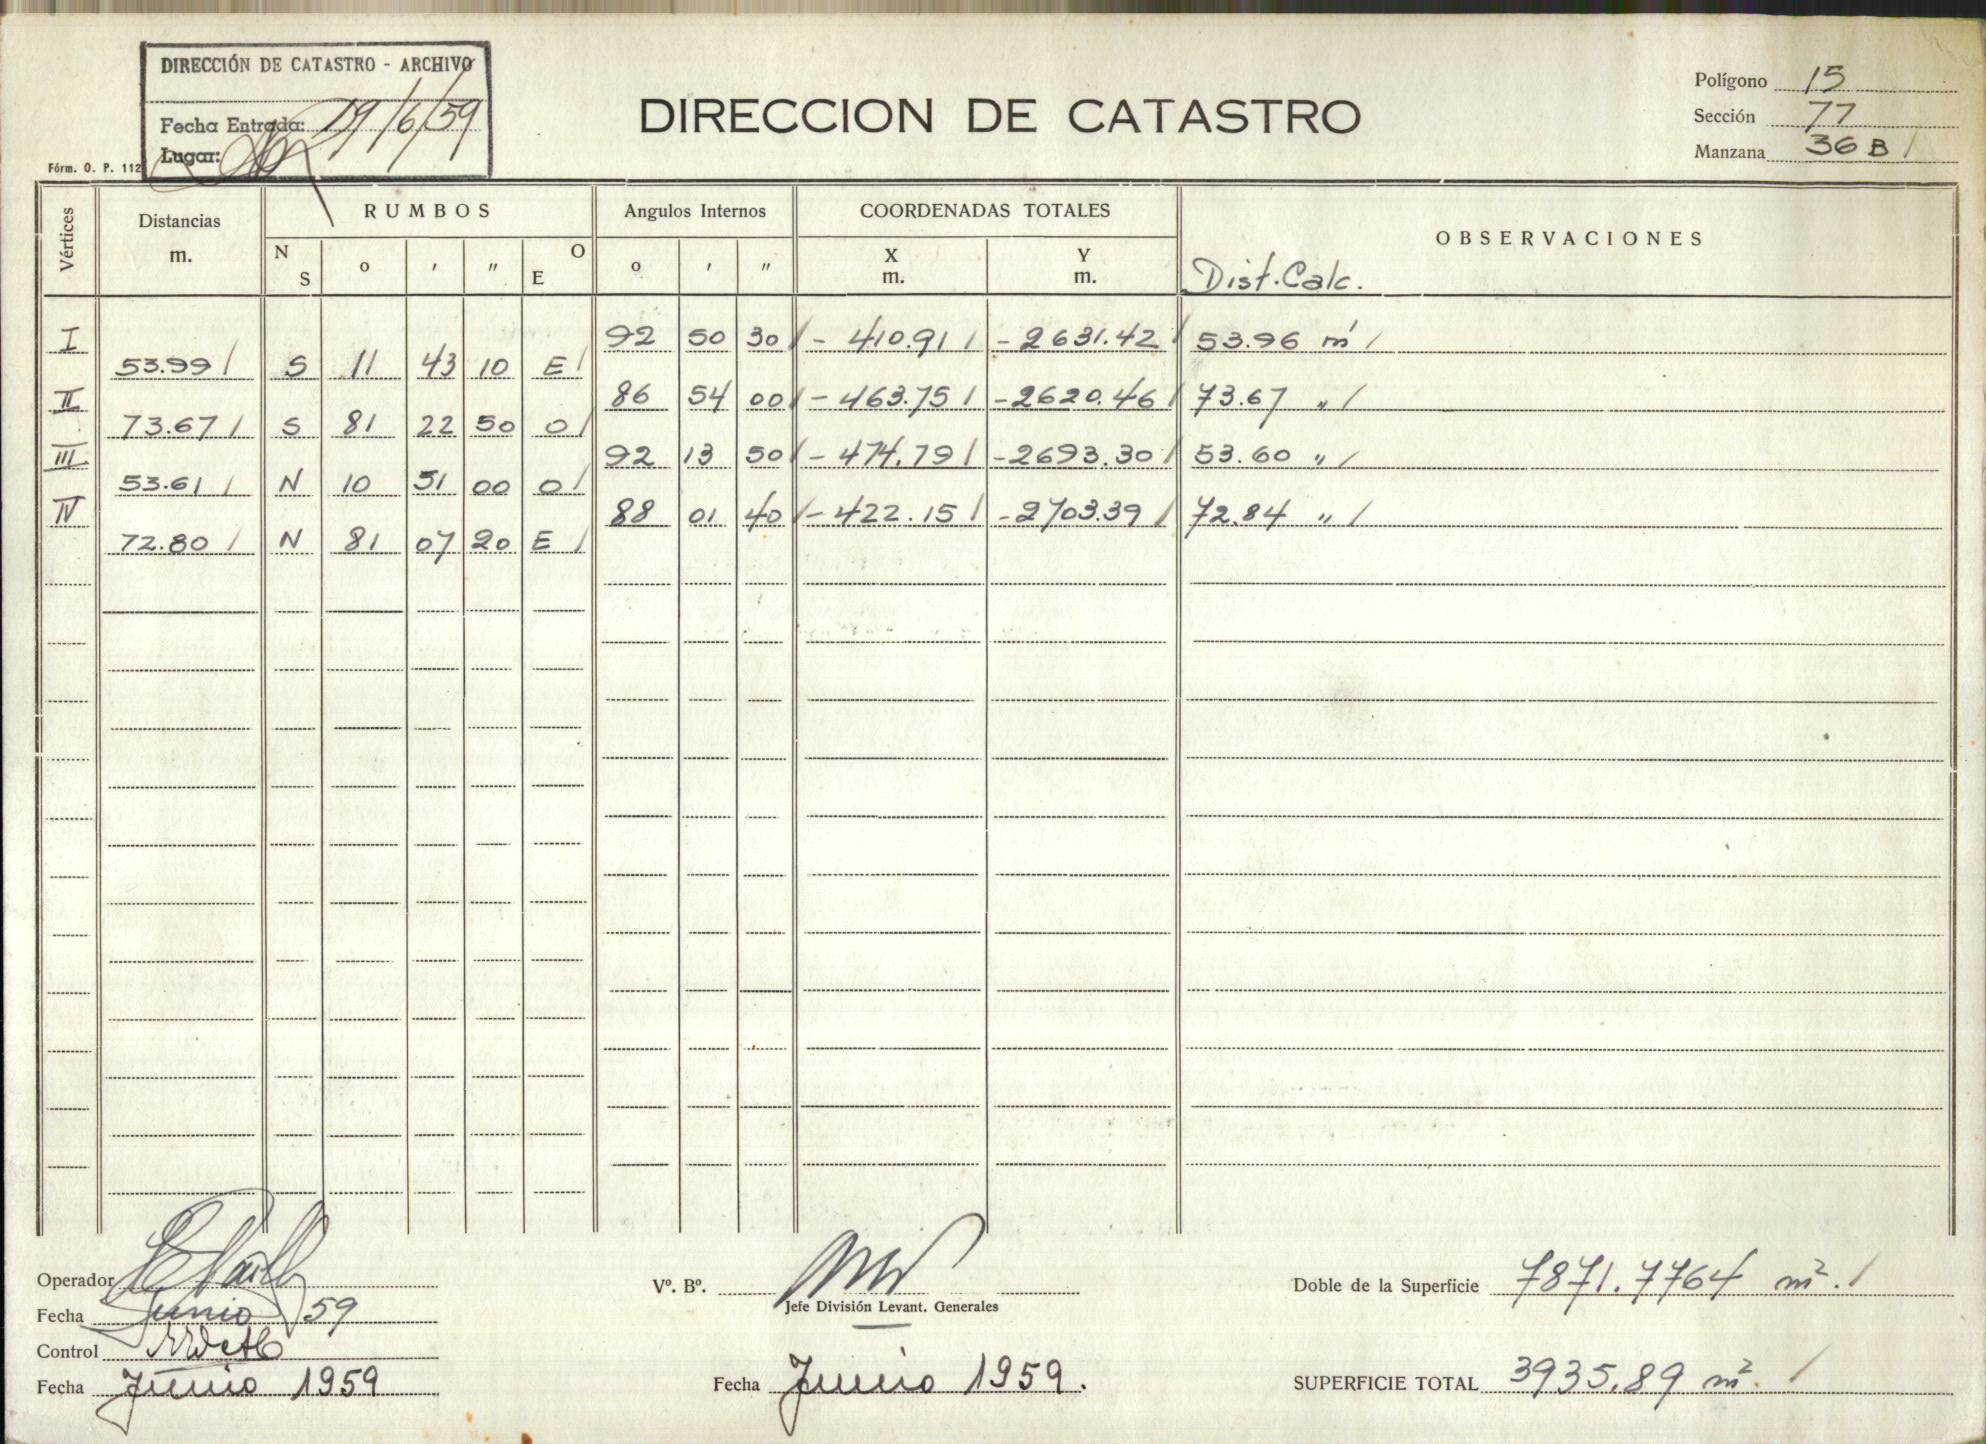 DIRECCIÓN DE CATASTRO - ARCHIVO
Fecha Entrada: 19/6/59
Lugar:
Fórm. O. P. 112
DIRECCION DE CATASTRO
Polígono 15
Sección 77
Manzana 36 B /
Vértices Distancias m. RUMBOS Angulos Internos COORDENADAS TOTALES OBSERVACIONES
N S o ' " E O o ' " X m. Y m. Dist. Calc.
I 92 50 30 / - 410.91 / - 2631.42 / 53.96 m /
53.99 / S 11 43 10 E /
II 86 54 00 / - 463.75 / - 2620.46 / 73.67 " /
73.67 / S 81 22 50 O /
III 92 13 50 / - 474.79 / - 2693.30 / 53.60 " /
53.61 / N 10 51 00 O /
IV 88 01 40 / - 422.15 / - 2703.39 / 72.84 " /
72.80 / N 81 07 20 E /
Operador
Fecha Junio 59
Control
Fecha Junio 1959
Vº. Bº.
Jefe División Levant. Generales
Fecha Junio 1959.
Doble de la Superficie 7871.7764 m². /
SUPERFICIE TOTAL 3935.89 m². /